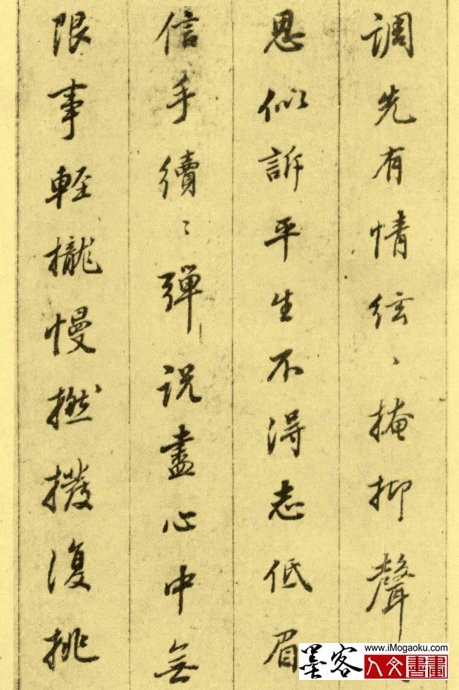 調先有情絃〻掩抑聲
思似訴平生不得志低眉
信手續〻彈説盡心中無
限事輕攏慢撚撥復挑
www.iMogaoku.com
墨客人文書畫